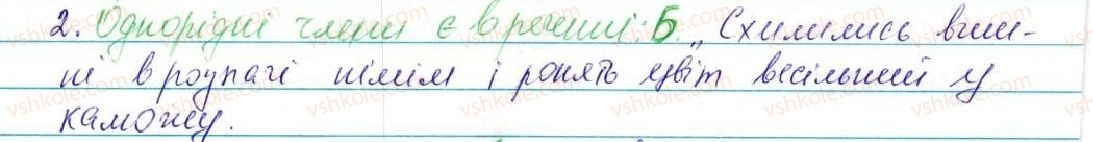 2. Однорідні члени є в реченні: Б. „Схилились виш-
ні в розпачі німім і ронять цвіт весільний у
каможу.